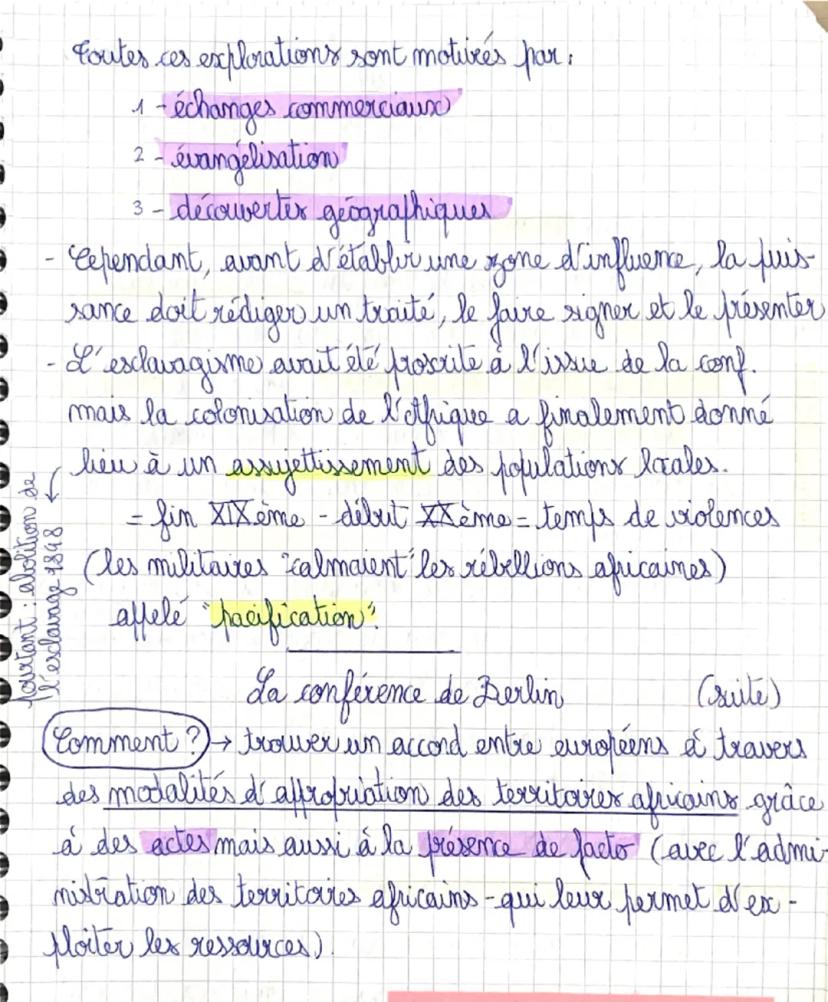 Toutes ces explorations sont motivées par :
1 - échanges commerciaux
2 - évangélisation
3 - découvertes géographiques
- Cependant, avant d'établir une zone d'influence, la puis-
sance doit rédiger un traité, le faire signer et le présenter
- L'esclavagisme avait été proscrite à l'issue de la conf.
mais la colonisation de l'Afrique a finalement donné
lieu à un assujettissement des populations locales.
= fin XIXème - début XXème = temps de violences
(les militaires "calmaient" les rébellions africaines)
appelé "pacification".
pourtant : abolition de
l'esclavage 1848
La conférence de Berlin (suite)
Comment ? → trouver un accord entre européens à travers
des modalités d'appropriation des territoires africains grâce
à des actes mais aussi à la présence de facto (avec l'admi-
nistration des territoires africains - qui leur permet d'ex-
ploiter les ressources).